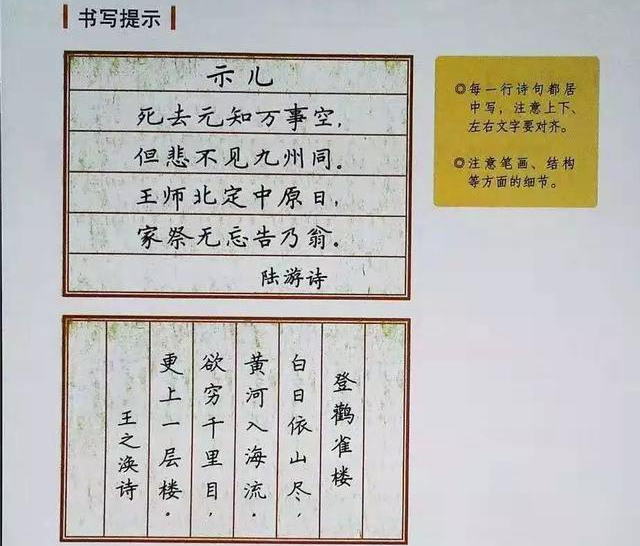 书写提示
示儿
死去元知万事空，
但悲不见九州同。
王师北定中原日，
家祭无忘告乃翁。
陆游诗
◎每一行诗句都居
中写，注意上下、
左右文字要对齐。
◎注意笔画、结构
等方面的细节。
登鹳雀楼
白日依山尽，
黄河入海流。
欲穷千里目，
更上一层楼。
王之涣诗